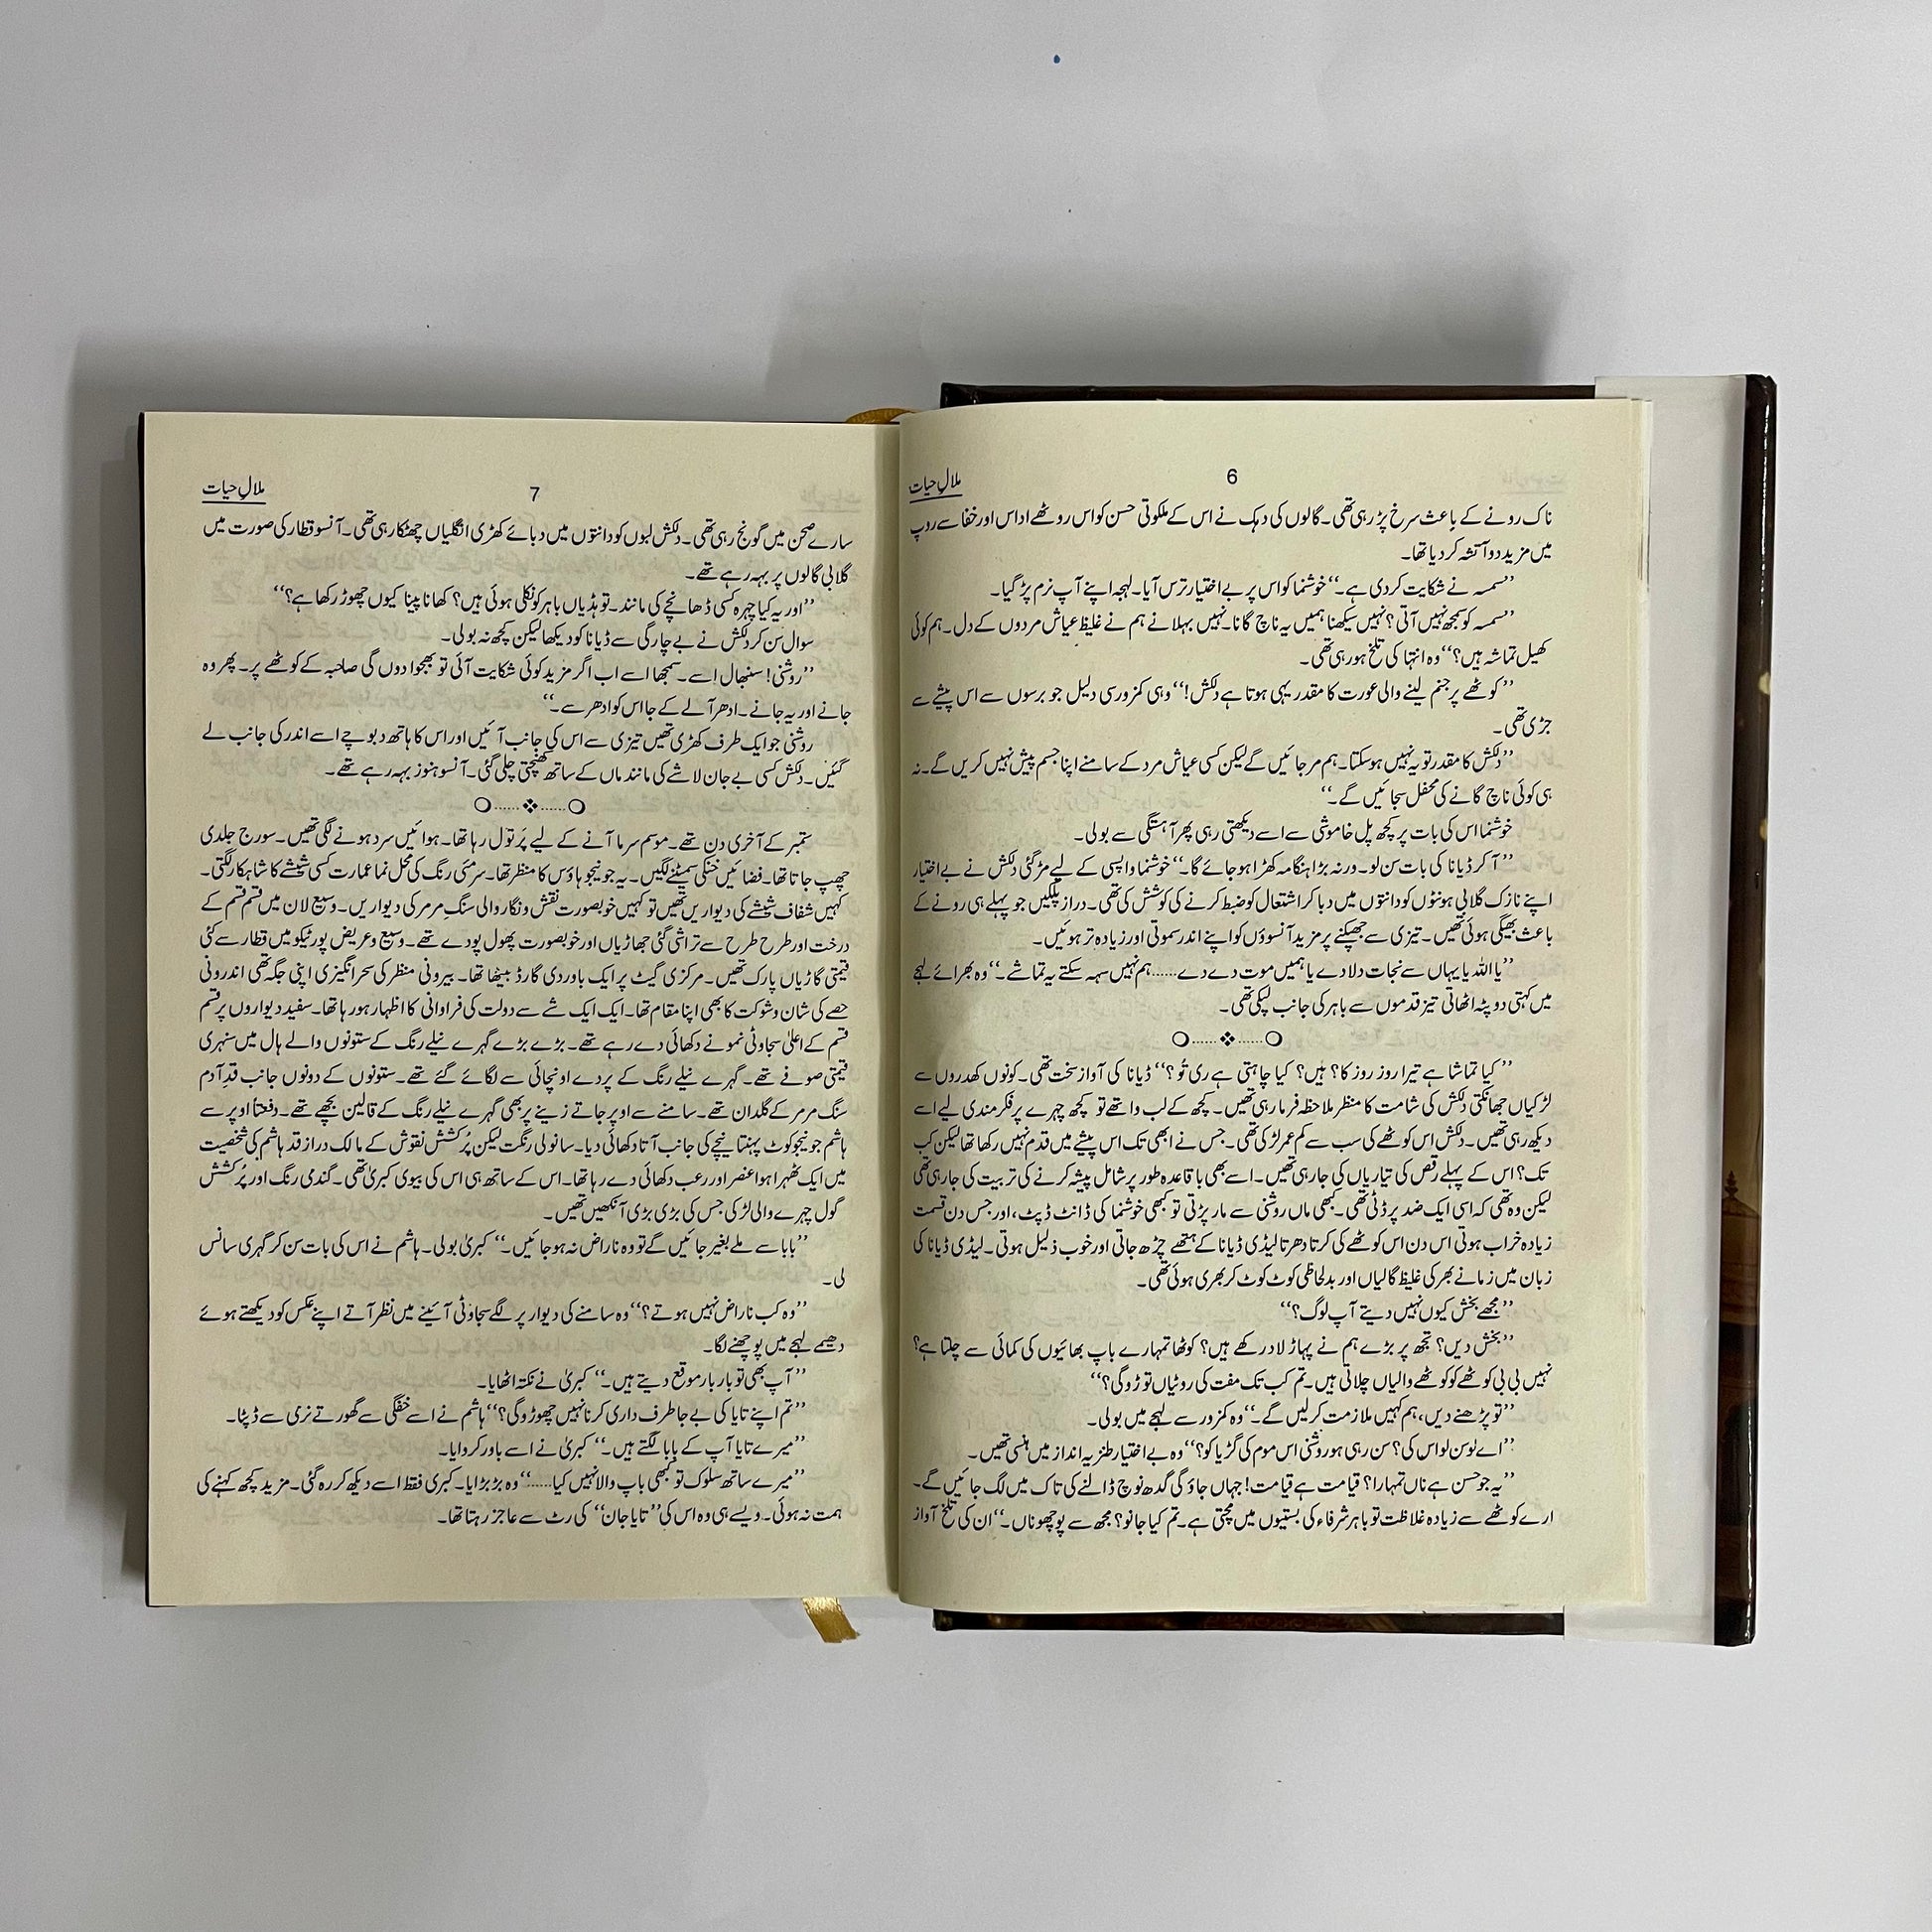 6
ملالِ حیات
ناک رونے کے باعث سرخ پڑ رہی تھی۔ گالوں کی دہک نے اس کے ملکوتی حسن کو اس روٹھے اداس اور خفا سے روپ
میں مزید دو آتشہ کر دیا تھا۔
’’سمسہ نے شکایت کر دی ہے۔‘‘ خوشنما کو اس پر بے اختیار ترس آیا۔ لہجہ اپنے آپ نرم پڑ گیا۔
’’سمسہ کو سمجھ نہیں آتی؟ نہیں سیکھنا ہمیں یہ ناچ گانا۔ نہیں بہلانے ہم نے غلیظ عیاش مردوں کے دل۔ ہم کوئی
کھیل تماشہ ہیں؟‘‘ وہ انتہا کی تلخ ہو رہی تھی۔
’’کوٹھے پر جنم لینے والی عورت کا مقدر یہی ہوتا ہے دلکش!‘‘ وہی کمزور سی دلیل جو برسوں سے اس پیشے سے
جڑی تھی۔
’’دلکش کا مقدر تو یہ نہیں ہو سکتا۔ ہم مر جائیں گے لیکن کسی عیاش مرد کے سامنے اپنا جسم پیش نہیں کریں گے۔ نہ
ہی کوئی ناچ گانے کی محفل سجائیں گے۔‘‘
خوشنما اس کی بات پر کچھ پل خاموشی سے اسے دیکھتی رہی پھر آہستگی سے بولی۔
’’آ کر ڈیانا کی بات سن لو۔ ورنہ بڑا ہنگامہ کھڑا ہو جائے گا۔‘‘ خوشنما واپسی کے لیے مڑ گئی دلکش نے بے اختیار
اپنے نازک گلابی ہونٹوں کو دانتوں میں دبا کر اشتعال کو ضبط کرنے کی کوشش کی تھی۔ دراز پلکیں جو پہلے ہی رونے کے
باعث بھیگی ہوئی تھیں۔ تیزی سے جھپکنے پر مزید آنسوؤں کو اپنے اندر سموتی اور زیادہ تر ہوئیں۔
’’یا اللہ یا یہاں سے نجات دلا دے یا ہمیں موت دے دے...... ہم نہیں سہہ سکتے یہ تماشے۔‘‘ وہ بھرائے لہجے
میں کہتی دوپٹہ اٹھاتی تیز قدموں سے باہر کی جانب لپکی تھی۔
’’کیا تماشا ہے تیرا روز روز کا؟ ہیں؟ کیا چاہتی ہے ری تُو؟‘‘ ڈیانا کی آواز سخت تھی۔ کونوں کھدروں سے
لڑکیاں جھانکتی دلکش کی شامت کا منظر ملاحظہ فرما رہی تھیں۔ کچھ کے لب وا تھے تو کچھ چہرے پر فکرمندی لیے اسے
دیکھ رہی تھیں۔ دلکش اس کوٹھے کی سب سے کم عمر لڑکی تھی۔ جس نے ابھی تک اس پیشے میں قدم نہیں رکھا تھا لیکن کب
تک؟ اس کے پہلے رقص کی تیاریاں کی جا رہی تھیں۔ اسے بھی باقاعدہ طور پر شامل پیشہ کرنے کی تربیت کی جا رہی تھی
لیکن وہ تھی کہ اسی ایک ضد پر ڈٹی تھی۔ کبھی ماں روشنی سے مار پڑتی تو کبھی خوشنما کی ڈانٹ ڈپٹ، اور جس دن قسمت
زیادہ خراب ہوتی اس دن اس کوٹھے کی کرتا دھرتا لیڈی ڈیانا کے ہتھے چڑھ جاتی اور خوب ذلیل ہوتی۔ لیڈی ڈیانا کی
زبان میں زمانے بھر کی غلیظ گالیاں اور بدلحاظی کوٹ کوٹ کر بھری ہوئی تھی۔
’’مجھے بخش کیوں نہیں دیتے آپ لوگ؟‘‘
’’بخش دیں؟ تجھ پر بڑے ہم نے پہاڑ لاد رکھے ہیں؟ کوٹھا تمہارے باپ بھائیوں کی کمائی سے چلتا ہے؟
نہیں بی بی کوٹھے کو کوٹھے والیاں چلاتی ہیں۔ تم کب تک مفت کی روٹیاں توڑو گی؟‘‘
’’تو پڑھنے دیں، ہم کہیں ملازمت کر لیں گے۔‘‘ وہ کمزور سے لہجے میں بولی۔
’’اے لو سن لو اس کی؟ سن رہی ہو روشنی اس موم کی گڑیا کو؟‘‘ وہ بے اختیار طنزیہ انداز میں ہنسی تھیں۔
’’یہ جو حسن ہے ناں تمہارا؟ قیامت ہے قیامت! جہاں جاؤ گی گدھ نوچ ڈالنے کی تاک میں لگ جائیں گے۔
ارے کوٹھے سے زیادہ غلاظت تو باہر شرفاء کی بستیوں میں مچتی ہے۔ تم کیا جانو؟ مجھ سے پوچھو ناں۔‘‘ ان کی تلخ آواز
7
ملالِ حیات
سارے صحن میں گونج رہی تھی۔ دلکش لبوں کو دانتوں میں دبائے کھڑی انگلیاں چٹخا رہی تھی۔ آنسو قطار کی صورت میں
گلابی گالوں پر بہہ رہے تھے۔
’’اور یہ کیا چہرہ کسی ڈھانچے کی مانند۔ تو ہڈیاں باہر کو نکلی ہوئی ہیں؟ کھانا پینا کیوں چھوڑ رکھا ہے؟‘‘
سوال سن کر دلکش نے بے چارگی سے ڈیانا کو دیکھا لیکن کچھ نہ بولی۔
’’روشنی! سنبھال اسے۔ سمجھا اسے اب اگر مزید کوئی شکایت آئی تو بھجوا دوں گی صاحبہ کے کوٹھے پر۔ پھر وہ
جانے اور یہ جانے۔ ادھر آ لے کے جا اس کو ادھر سے۔‘‘
روشنی جو ایک طرف کھڑی تھیں تیزی سے اس کی جانب آئیں اور اس کا ہاتھ دبوچے اسے اندر کی جانب لے
گئیں۔ دلکش کسی بے جان لاشے کی مانند ماں کے ساتھ کھنچتی چلی گئی۔ آنسو ہنوز بہہ رہے تھے۔
ستمبر کے آخری دن تھے۔ موسم سرما آنے کے لیے پَر تول رہا تھا۔ ہوائیں سرد ہونے لگی تھیں۔ سورج جلدی
چھپ جاتا تھا۔ فضائیں خنکی سمیٹنے لگیں۔ یہ جونیجو ہاؤس کا منظر تھا۔ سرمئی رنگ کی محل نما عمارت کسی شیشے کا شاہکار لگتی۔
کہیں شفاف شیشے کی دیواریں تھیں تو کہیں خوبصورت نقش و نگار والی سنگِ مرمر کی دیواریں۔ وسیع لان میں قسم قسم کے
درخت اور طرح طرح سے تراشی گئی جھاڑیاں اور خوبصورت پھول پودے تھے۔ وسیع و عریض پورٹیکو میں قطار سے کئی
قیمتی گاڑیاں پارک تھیں۔ مرکزی گیٹ پر ایک باوردی گارڈ بیٹھا تھا۔ بیرونی منظر کی سحر انگیزی اپنی جگہ تھی اندرونی
حصے کی شان و شوکت کا بھی اپنا مقام تھا۔ ایک ایک شے سے دولت کی فراوانی کا اظہار ہو رہا تھا۔ سفید دیواروں پر قسم
قسم کے اعلیٰ سجاوٹی نمونے دکھائی دے رہے تھے۔ بڑے بڑے گہرے نیلے رنگ کے ستونوں والے ہال میں سنہری
قیمتی صوفے تھے۔ گہرے نیلے رنگ کے پردے اونچائی سے لگائے گئے تھے۔ ستونوں کے دونوں جانب قدِ آدم
سنگ مرمر کے گلدان تھے۔ سامنے سے اوپر جاتے زینے پر بھی گہرے نیلے رنگ کے قالین بچھے تھے۔ دفعتاً اوپر سے
ہاشم جونیجو کوٹ پہنتا نیچے کی جانب آتا دکھائی دیا۔ سانولی رنگت لیکن پُرکشش نقوش کے مالک دراز قد ہاشم کی شخصیت
میں ایک ٹھہرا ہوا عنصر اور رعب دکھائی دے رہا تھا۔ اس کے ساتھ ہی اس کی بیوی کبریٰ تھی۔ گندمی رنگ اور پُرکشش
گول چہرے والی لڑکی جس کی بڑی بڑی آنکھیں تھیں۔
’’بابا سے ملے بغیر جائیں گے تو وہ ناراض نہ ہو جائیں۔‘‘ کبریٰ بولی۔ ہاشم نے اس کی بات سن کر گہری سانس
لی۔
’’وہ کب ناراض نہیں ہوتے؟‘‘ وہ سامنے کی دیوار پر لگے سجاوٹی آئینے میں نظر آتے اپنے عکس کو دیکھتے ہوئے
دھیمے لہجے میں پوچھنے لگا۔
’’آپ بھی تو بار بار موقع دیتے ہیں۔‘‘ کبریٰ نے نکتہ اٹھایا۔
’’تم اپنے تایا کی بے جا طرف داری کرنا نہیں چھوڑو گی؟‘‘ ہاشم نے اسے خفگی سے گھورتے نرمی سے ڈپٹا۔
’’میرے تایا آپ کے بابا لگتے ہیں۔‘‘ کبریٰ نے اسے باور کروایا۔
’’میرے ساتھ سلوک تو کبھی باپ والا نہیں کیا......‘‘ وہ بڑبڑایا۔ کبریٰ فقط اسے دیکھ کر رہ گئی۔ مزید کچھ کہنے کی
ہمت نہ ہوئی۔ ویسے ہی وہ اس کی ’’تایا جان‘‘ کی رٹ سے عاجز رہتا تھا۔